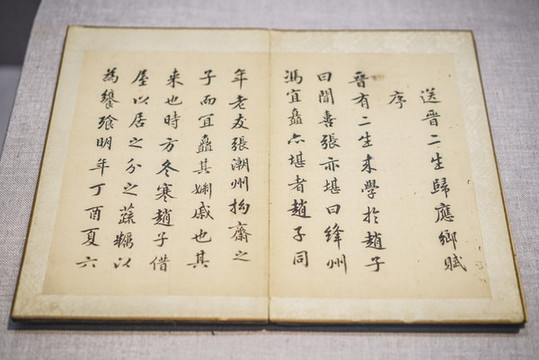 送晉二生歸應鄉賦
序
晉有二生来學於趙子
曰聞喜張亦堪曰絳州
馮宜矗亦堪者趙子同
年老友張潮州拗齋之
子而宜矗其姻戚也其
来也時方冬寒趙子借
屋以居之分之蔬糲以
為饔飱明年丁酉夏六